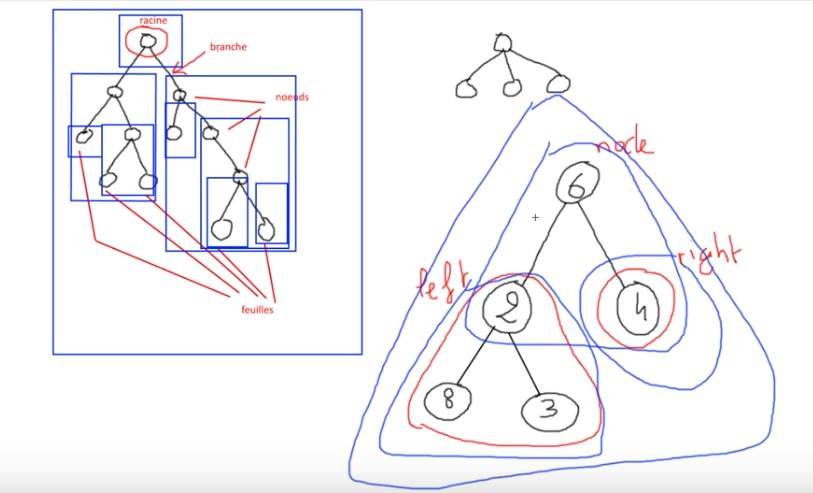 racine
branche
noeuds
feuilles
node
6
left
right
2
4
8
3